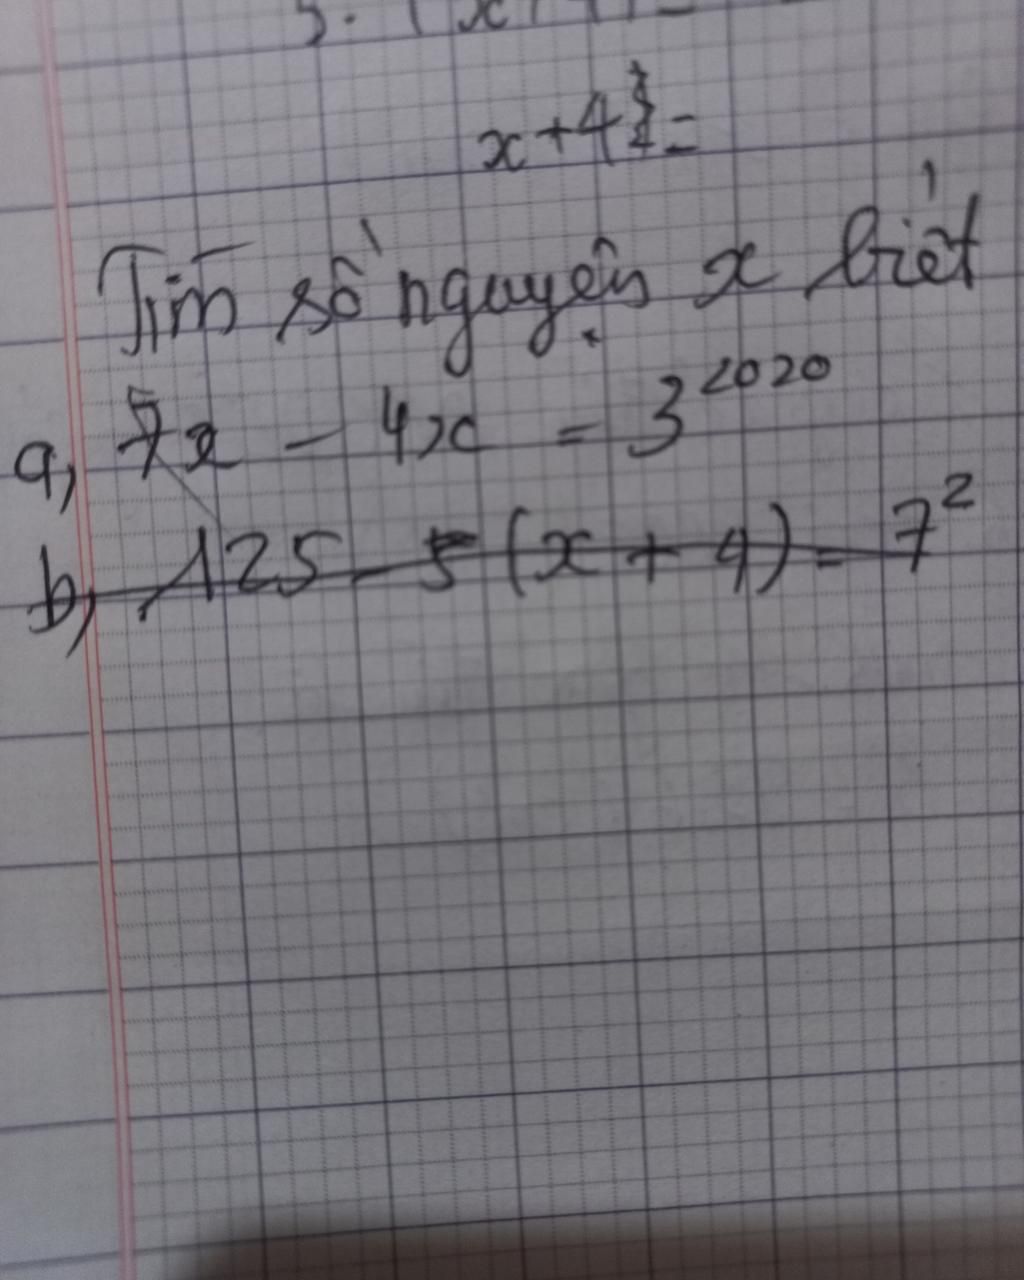 x+4}=
Tìm số nguyên x biết
a, 7x - 4x = 3^2020
b, 125 - 5 (x + 4) = 7^2